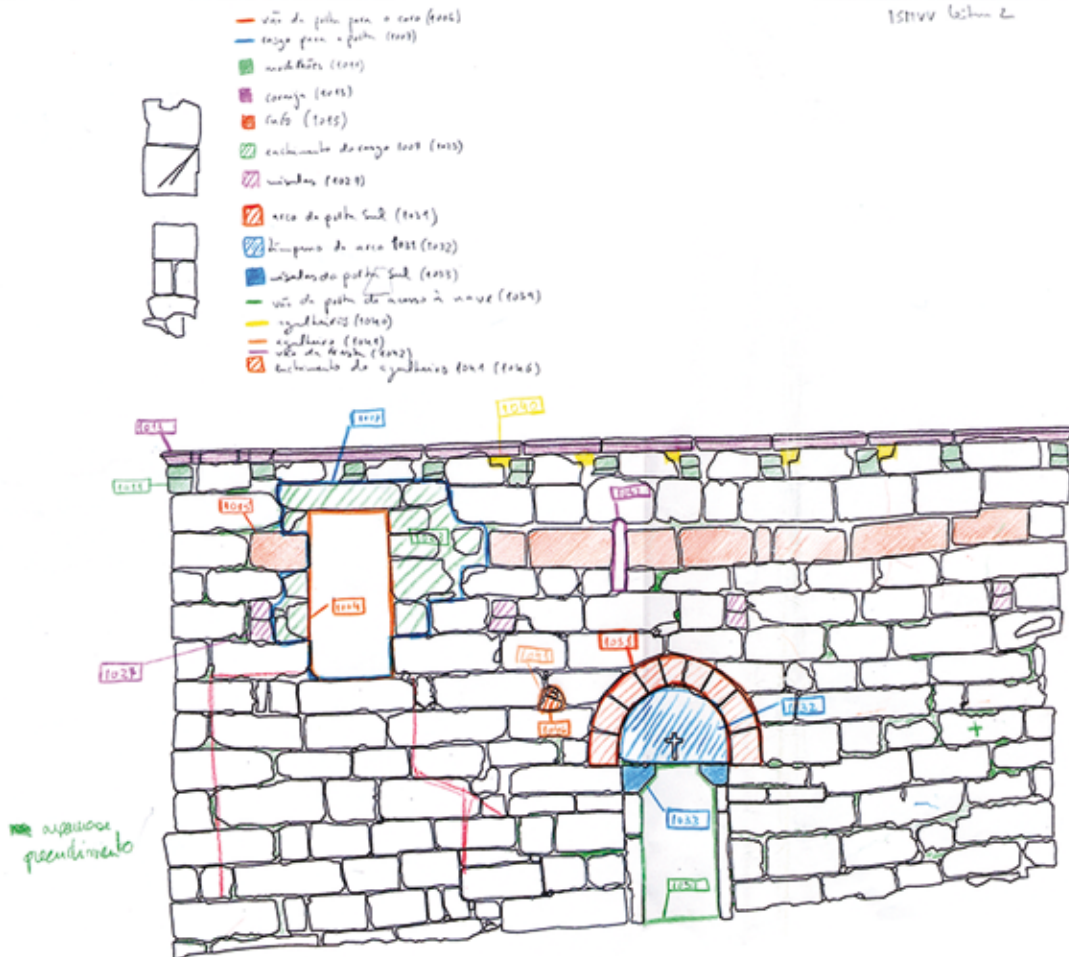 ISMVV
vão da porta para o coro (1006)
rasgo para a porta (1007)
modilhões (1011)
cornija (1013)
(1015)
enchimento do rasgo 1007 (1023)
mísulas (1027)
arco da porta sul (1031)
tímpano do arco 1031 (1032)
mísulas da porta sul (1033)
vão da porta de acesso à nave (1039)
agulheiros (1040)
agulheiro (1041)
vão da fresta (1042)
enchimento do agulheiros 1041 (1046)
1040
1007
1013
1011
1015
1042
1031
1027
1041
1032
1046
1033
1039
argamassa
preenchimento